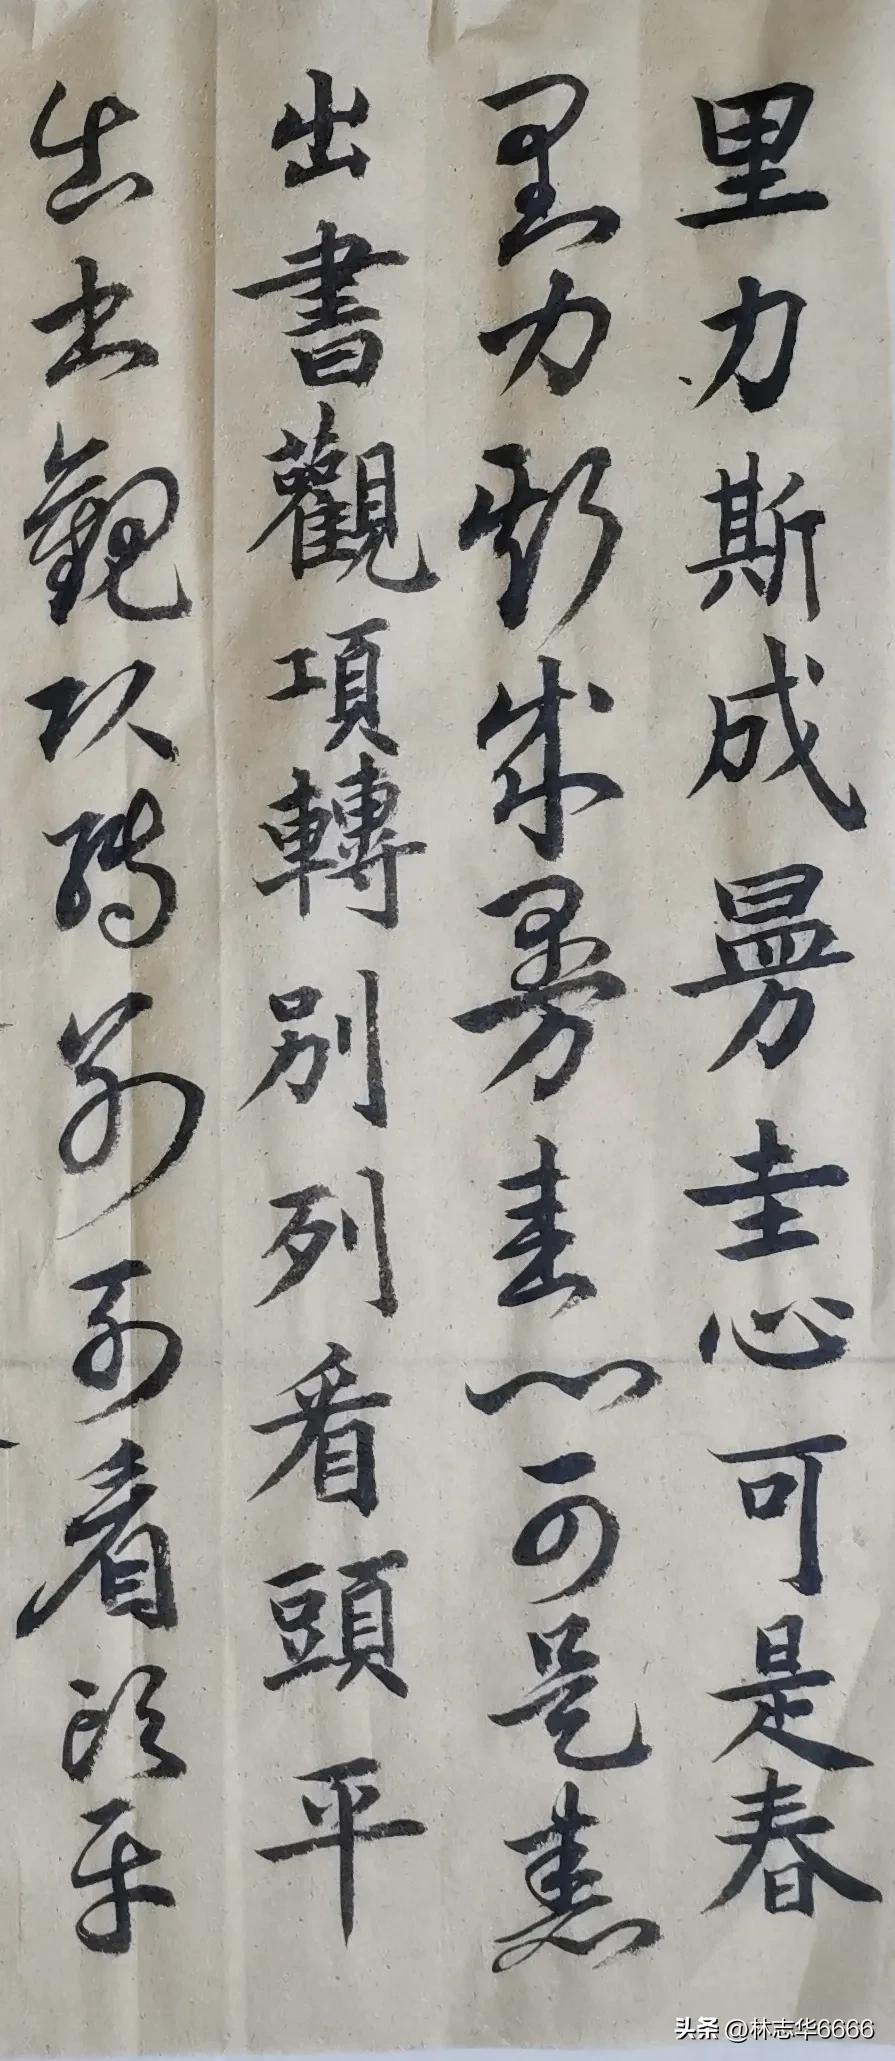 里力斯成曼圭心可是春
里力斯成曼圭心可是春
出書觀項轉别列看頭平
出书觀项转别列看头平
头条 @林志华6666